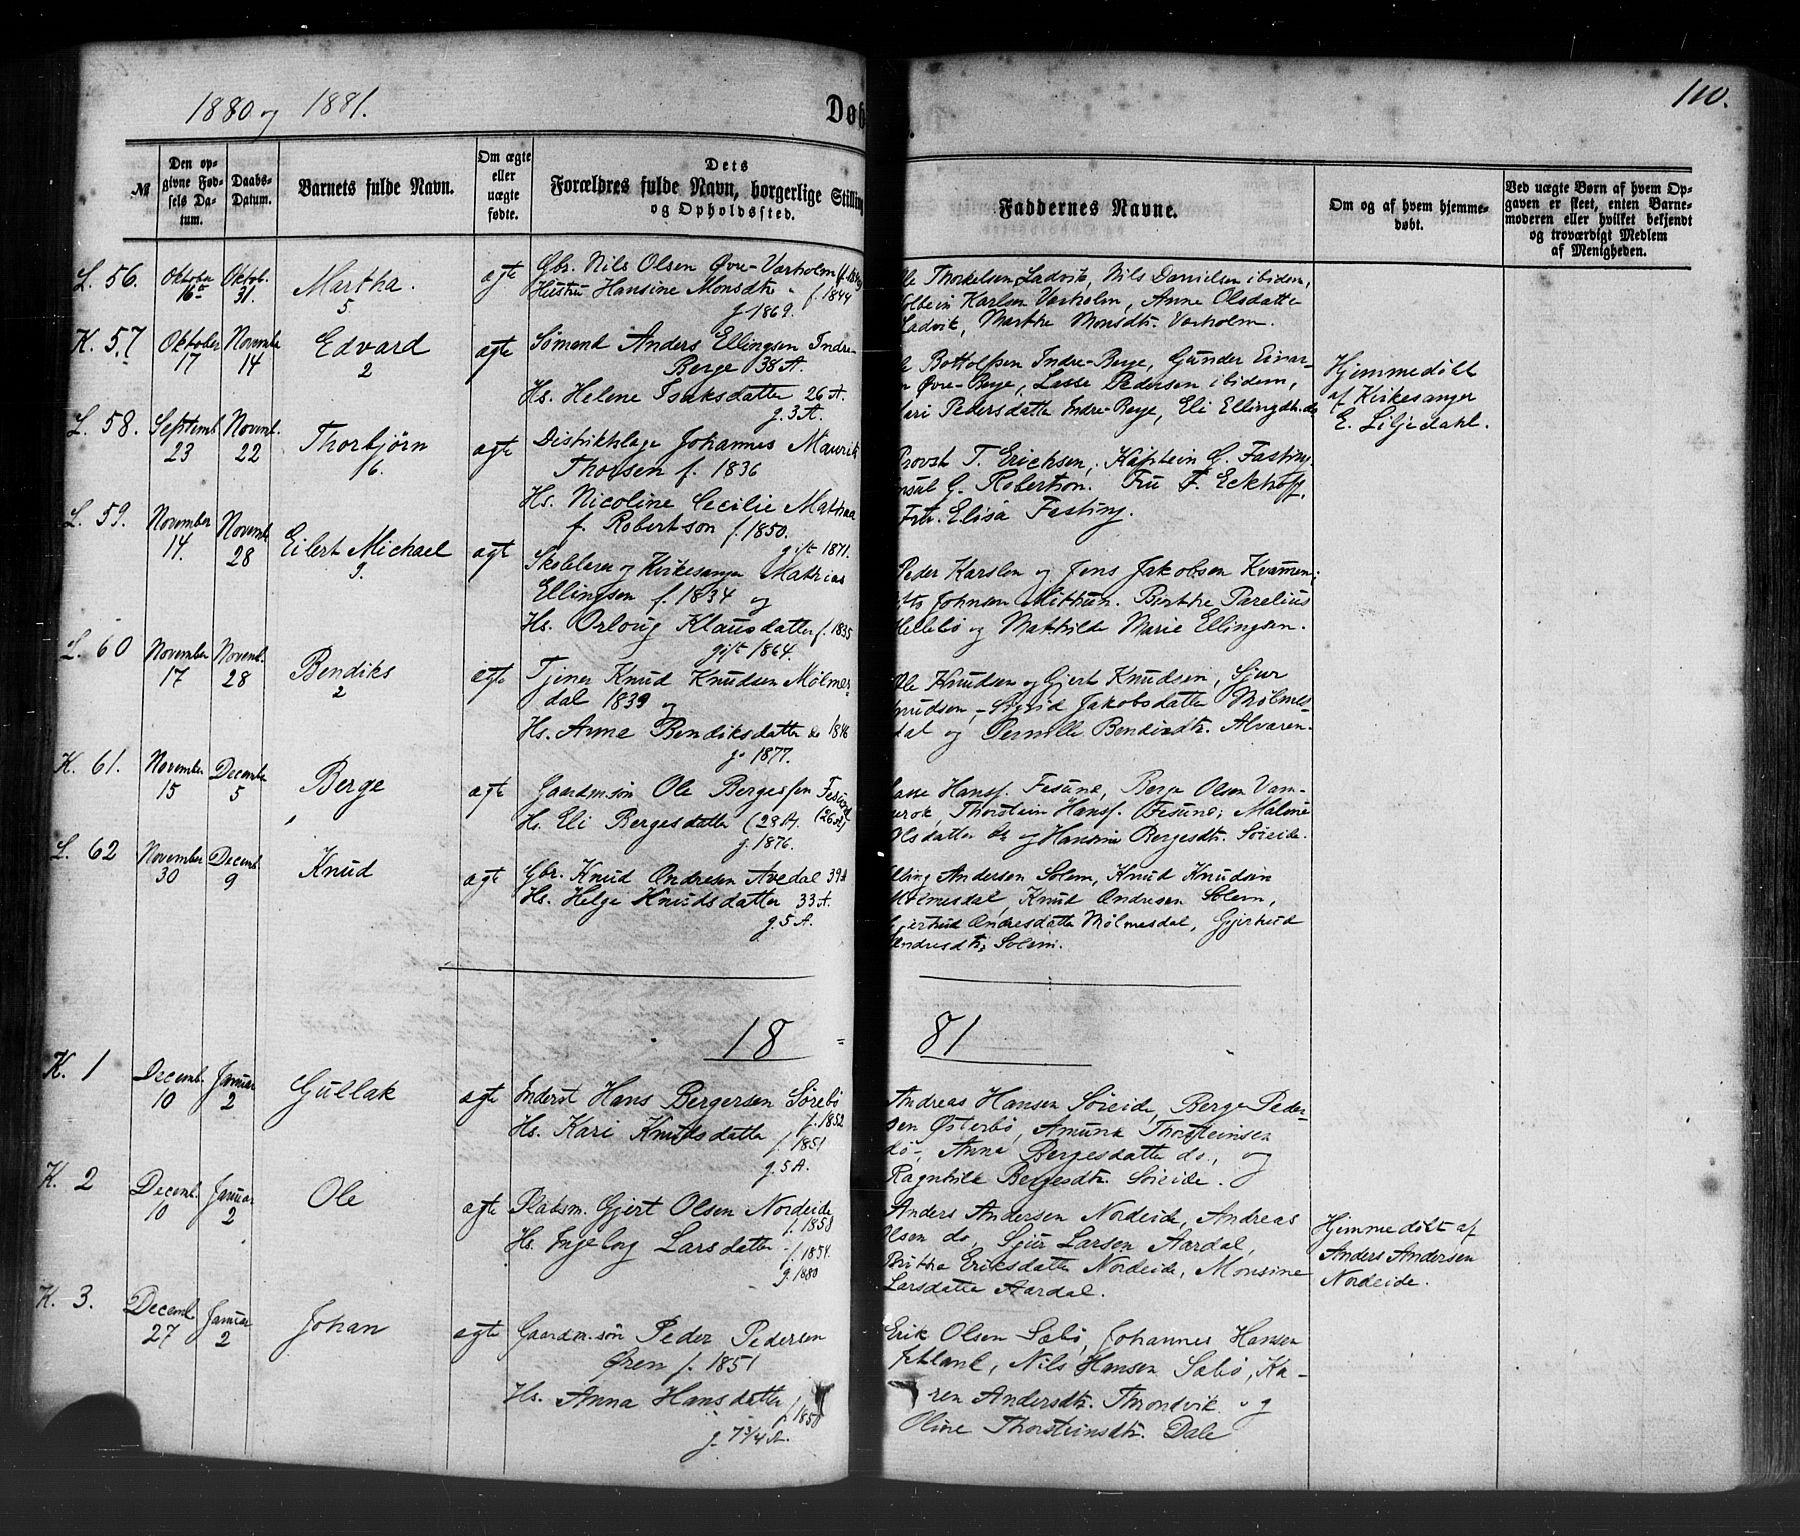 1880 og 1881.
Døb
110.
№
Den opgivne Fødsels Datum.
Daabs-Datum.
Barnets fulde Navn.
Om ægte eller uægte fødte.
Dets Forældres fulde Navn, borgerlige Stilling og Opholdssted.
Faddernes Navne.
Om og af hvem hjemmedøbt.
Ved uægte Børn af hvem Opgaven er skeet, enten Barnemoderen eller hvilket bekjendt og troværdigt Medlem af Menigheden.
L. 56. Oktober 16 Oktob. 31. Martha. 5. ægte
Gbr. Nils Olsen Øvre-Varholm
Hustru Hansine Monsdtr f. 1844
g 1869.
Ole Thorkelsen Ladvik, Nils Danielsen ibidem,
Karlsen Varholm, Anne Olsdatter
Ladvik, Marthe Monsdtr. Varholm.
K. 57 Oktober 17 Novembr 14 Edvard 2 ægte
Sømand Anders Ellingsen Indre-
Berge 38 A.
Hs. Helene Isaksdatter 26 A.
g. 3 A.
Bottolfsen Indre-Berge, Gunder Einar-
n Øvre-Berge, Lasse Pedersen ibidem,
Kari Pedersdatter Indre-Berge, Eli Ellingdtr. do
Hjemmedøbt
af Kirkesanger
E. Liljedahl.
L. 58. Septemb. 23 Novemb. 22 Thorbjørn 6. ægte
Distriktslæge Johannes Mauritz
Thorsen f. 1836
Hs. Nicoline Cecilie Mathea
f. Robertson f. 1850.
gift 1871.
Provst T. Erichsen, Kaptein G. Fasting
nsul G. Robertson. Fru F. Eckhoff,
Frk. Elisa Fasting.
L. 59. November 14. Novemb. 28 Eilert Michael 9. ægte
Skolelærer og Kirkesanger Mathias
Ellingsen f. 1834 og
Hs. Orloug Klausdatter f. 1835
gift 1864.
Peder Karslen og Jens Jakobsen Kvammen;
Johnsen Mittun. Berthe Parelius
Hellebø og Mathilde Marie Ellingsen.
L. 60 November 17 Novemb. 28 Bendiks 2 ægte
Tjener Knud Knudsen Mølmes-
dal 1839 og
Hs. Anne Bendiksdatter do 1846
g. 1877.
Ole Knudsen og Gjert Knudsen, Sjur
Knudsen, Sigrid Jakobsdatter Mølmes-
dal og Pernille Bendixdtr. Alvaren.
K. 61. November 15 Decembr 5 Berge ægte
Gaardmsøn Ole Bergessen Fesund
(26 A)
Hs. Eli Bergesdatter (28 A).
g. 1876.
Lasse Hansf. Fesund, Berge Olsen Vam-
, Thorstein Hansf. Fesund; Malene
Olsdatter do og Hansine Bergesdt. Søreide.
L. 62 November 30 Decemb. 9 Knud ægte
Gbr. Knud Andresen Avedal 39 A
Hs. Helge Knudsdatter 33 A.
g. 5 A.
Elling Andersen Solem, Knud Knudsen
Mølmesdal, Knud Andresen Solem,
Gjertrud Andresdatter Mølmesdal, Gjertrud
Andresdtr. Solem.
18 = 81
K. 1 Decemb. 10 Januar 2 Gullak ægte
Inderst Hans Bergersen Sørebø
f. 1852
Hs. Kari Knudsdatter f. 1851
g. 5 A.
Andreas Hansen Søreide, Berge Peder-
sen Østerbø, Amund Thorsteinsen
do-, Anna Bergesdatter do., og
Ragnhild Bergesdtr. Søreide.
K. 2 Decemb. 10 Januar 2 Ole ægte
Pladsm. Gjert Olsen Nordeide
f. 1858
Hs. Ingeborg Larsdatter f. 1854.
g. 1880
Anders Andersen Nordeide, Andreas
Olsen do, Sjur Larsen Aardal,
Brithe Eriksdatter Nordeide, Monsine
Larsdatter Aardal.
Hjemmedøbt af
Anders Andersen
Nordeide.
K. 3. Decemb. 27 Januar 2 Johan ægte
Gaardm.søn Peder Pedersen
Øren f. 1851
Hs. Anna Hansdatter f. 1850
g. 7 3/4 A.
Erik Olsen Sæbø, Johannes Hansen
, Nils Hansen Sæbø, Ka-
ren Andersdtr. Throndvik og
Oline Thorsteinsdtr. Dale